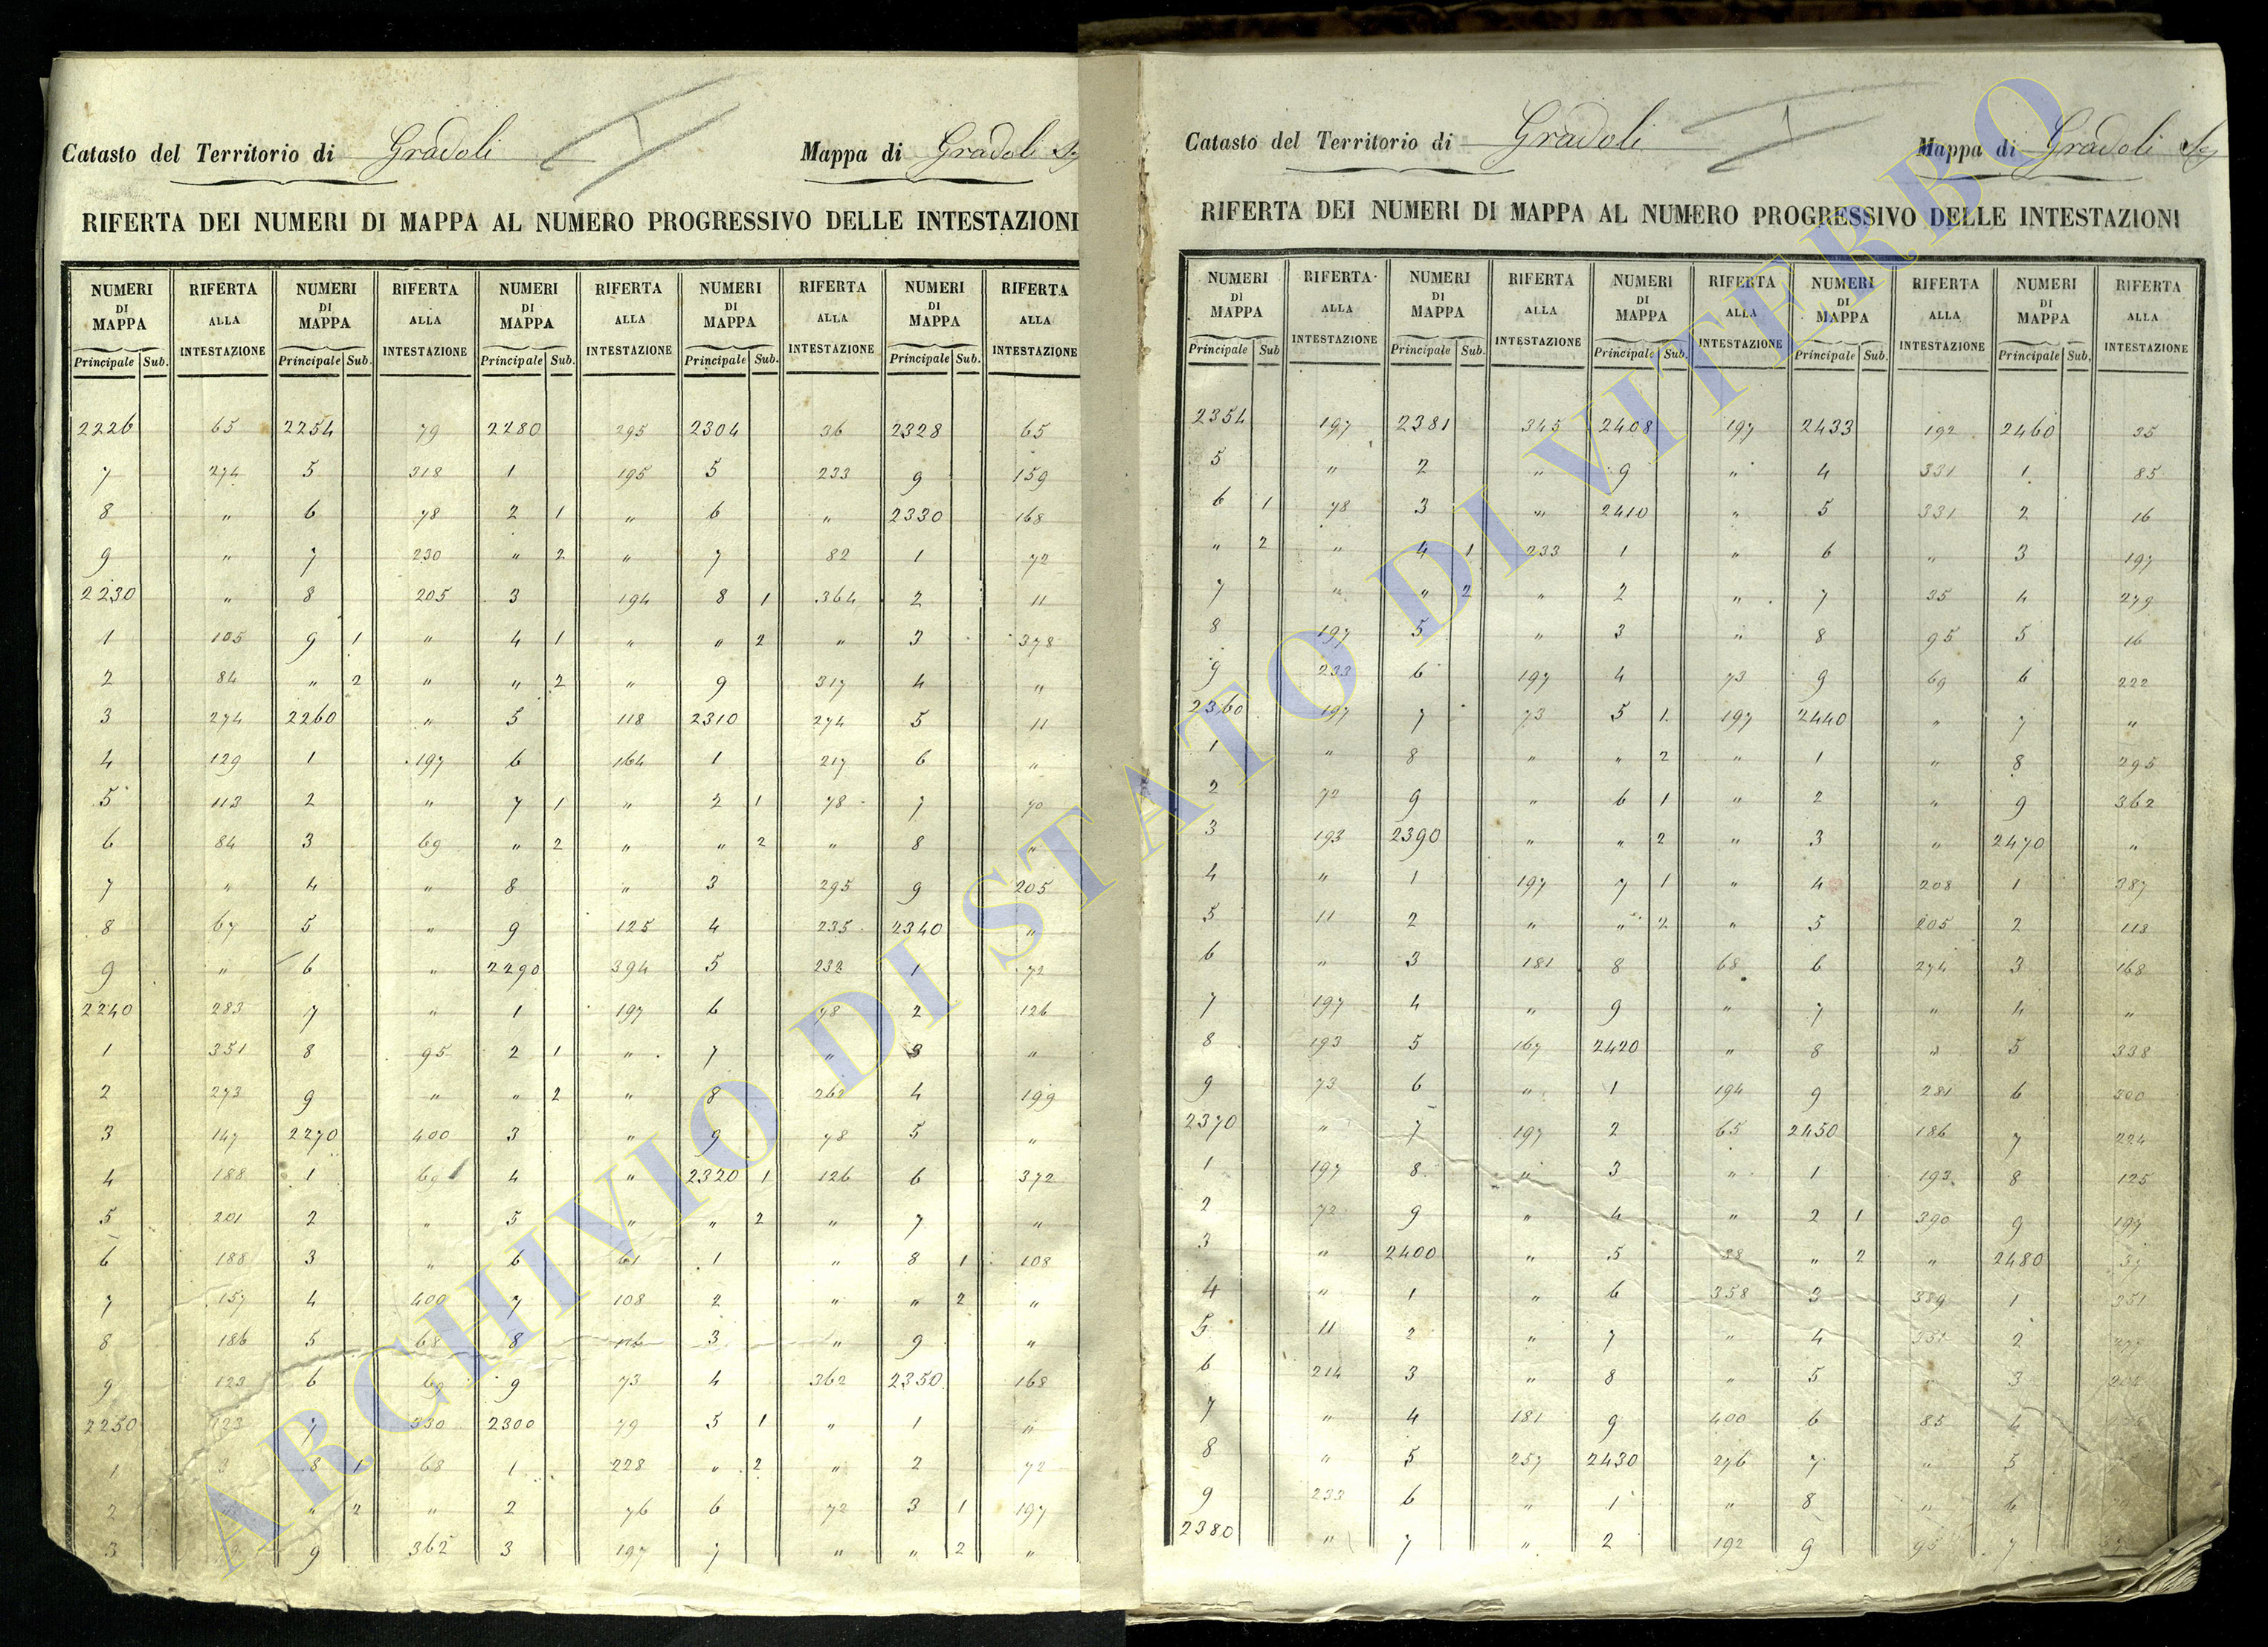 Catasto del Territorio di Gradoli I Mappa di Gradoli
RIFERTA DEI NUMERI DI MAPPA AL NUMERO PROGRESSIVO DELLE INTESTAZIONI
NUMERI DI MAPPA RIFERTA ALLA INTESTAZIONE NUMERI DI MAPPA RIFERTA ALLA INTESTAZIONE NUMERI DI MAPPA RIFERTA ALLA INTESTAZIONE NUMERI DI MAPPA RIFERTA ALLA INTESTAZIONE NUMERI DI MAPPA RIFERTA ALLA INTESTAZIONE
Principale Sub. Principale Sub. Principale Sub. Principale Sub. Principale Sub.
2226 65 2254 79 2280 295 2304 36 2328 65
7 274 5 318 1 195 5 233 9 159
8 " 6 78 2 1 " 6 " 2330 168
9 " 7 230 " 2 " 7 82 1 72
2230 " 8 205 3 194 8 1 364 2 11
1 105 9 1 " 4 1 " " 2 " 3 378
2 84 " 2 " " 2 " 9 317 4 "
3 274 2260 " 5 118 2310 274 5 11
4 129 1 197 6 164 1 217 6 "
5 113 2 " 7 1 " 2 1 78 7 70
6 84 3 69 " 2 " " 2 " 8 "
7 " 4 " 8 " 3 295 9 205
8 67 5 " 9 125 4 235 2340 "
9 " 6 " 2290 394 5 232 1 72
2240 283 7 " 1 197 6 78 2 126
1 351 8 95 2 1 " 7 " 3 "
2 273 9 " " 2 " 8 262 4 199
3 147 2270 400 3 " 9 78 5 "
4 188 1 69 4 " 2320 1 126 6 372
5 201 2 " 5 " " 2 " 7 "
6 188 3 " 6 61 1 " 8 1 108
7 157 4 400 7 108 2 " " 2 "
8 186 5 68 8 3 " 9 "
9 123 6 69 9 73 4 362 2350 168
2250 123 7 330 2300 79 5 1 " 1 "
1 8 1 68 1 228 " 2 " 2 72
2 " 2 " 2 76 6 72 3 1 197
3 9 362 3 197 7 " " 2 "
Catasto del Territorio di Gradoli I Mappa di Gradoli
RIFERTA DEI NUMERI DI MAPPA AL NUMERO PROGRESSIVO DELLE INTESTAZIONI
NUMERI DI MAPPA RIFERTA ALLA INTESTAZIONE NUMERI DI MAPPA RIFERTA ALLA INTESTAZIONE NUMERI DI MAPPA RIFERTA ALLA INTESTAZIONE NUMERI DI MAPPA RIFERTA ALLA INTESTAZIONE NUMERI DI MAPPA RIFERTA ALLA INTESTAZIONE
Principale Sub Principale Sub. Principale Sub. Principale Sub. Principale Sub.
2354 197 2381 345 2408 197 2433 192 2460 35
5 " 2 " 9 " 4 331 1 85
6 1 78 3 " 2410 " 5 331 2 16
" 2 " 4 1 233 1 " 6 " 3 197
7 " " 2 " 2 " 7 35 4 279
8 197 5 " 3 " 8 95 5 16
9 233 6 197 4 73 9 69 6 222
2360 197 7 73 5 1 197 2440 " 7 "
1 " 8 " " 2 " 1 " 8 295
2 72 9 " 6 1 " 2 " 9 362
3 193 2390 " " 2 " 3 " 2470 "
4 " 1 197 7 1 " 4 208 1 387
5 11 2 " " 2 " 5 205 2 118
6 " 3 181 8 68 6 274 3 168
7 197 4 " 9 " 7 " 4 "
8 193 5 167 2420 " 8 " 5 338
9 73 6 " 1 194 9 281 6 300
2370 " 7 197 2 65 2450 186 7 224
1 197 8 " 3 " 1 193 8 125
2 72 9 " 4 " 2 1 390 9 197
3 " 2400 " 5 38 " 2 " 2480 37
4 " 1 " 6 358 3 389 1 351
5 11 2 " 7 " 4 351 2
6 214 3 " 8 " 5 " 3
7 " 4 181 9 400 6 85 4
8 " 5 257 2430 276 7 " 5
9 233 6 " 1 " 8 " 6
2380 " 7 " 2 192 9 95 7
ARCHIVIO DI STATO DI VITERBO